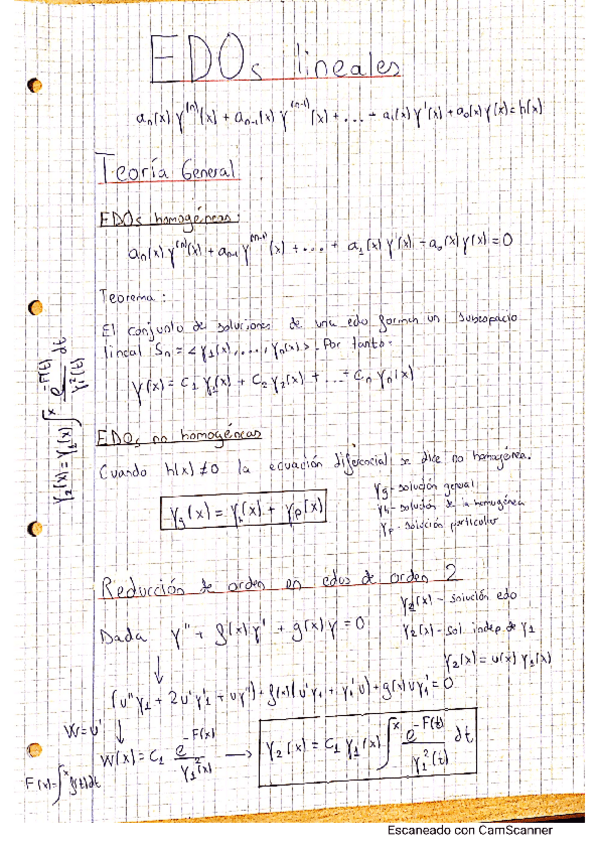 EDOs lineales
aₙ(x) y⁽ⁿ⁾(x) + aₙ₋₁(x) y⁽ⁿ⁻¹⁾(x) + ... + a₁(x) y'(x) + a₀(x) y(x) = h(x)
Teoría General
EDOs homogéneas:
aₙ(x) y⁽ⁿ⁾(x) + aₙ₋₁ y⁽ⁿ⁻¹⁾(x) + ... + a₁(x) y'(x) + a₀(x) y(x) = 0
Teorema:
El conjunto de soluciones de una edo forman un subespacio
lineal Sₙ = <y₁(x), ..., yₙ(x)>. Por tanto:
y(x) = C₁ y₁(x) + C₂ y₂(x) + ... + Cₙ yₙ(x)
y₂(x) = y₁(x) ∫ˣ e^(-F(t)) / y₁²(t) dt
EDOs no homogéneas
Cuando h(x) ≠ 0 la ecuación diferencial se dice no homogénea.
y_g(x) = y_h(x) + y_p(x)
y_g - solución general
y_h - solución de la homogénea
y_p - solución particular
Reducción de orden en edos de orden 2
Dada y'' + f(x) y' + g(x) y = 0
solución edo
y₂(x) - sol indep. de y₁
y₂(x) = u(x) y₁(x)
(u'' y₁ + 2u' y'₁ + u y'') + f(x)(u' y₁ + y₁' u) + g(x) u y₁ = 0
W = u'
W(x) = C₁ e^(-F(x)) / y₁²(x) → y₂(x) = C₁ y₁(x) ∫ˣ e^(-F(t)) / y₁²(t) dt
F(x) = ∫ˣ f(t) dt
Escaneado con CamScanner